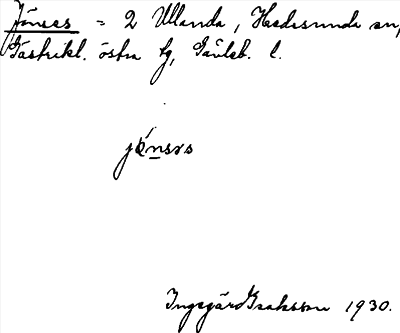 Jönses = 2 Ullanda, Hedesunda sn,
Gästrikl. östra tg, Gävleb. l.
jö́nsəs
Ingegärd Isaksson 1930.